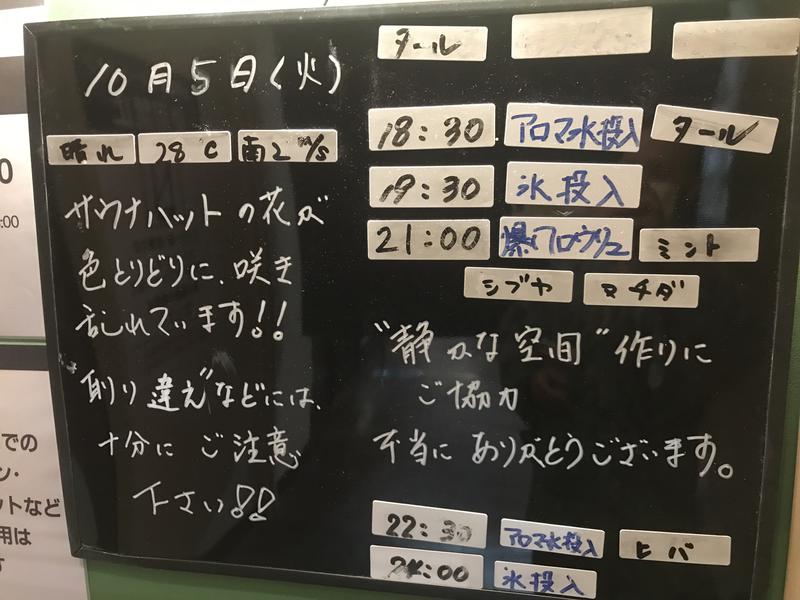 10月5日(火)
晴れ 28℃ 南2m/s
サウナハットの花が
色とりどりに、咲き
乱れています!!
"取り違え"などには、
十分にご注意
下さい!!
タール
18:30 アロマ水投入 タール
19:30 氷投入
21:00 爆風ロウリュ ミント
シブヤ マチダ
"静かな空間"作りに
ご協力
本当にありがとうございます。
22:30 アロマ水投入 ヒバ
24:00 氷投入
0
:00
での
ン・
ットなど
用は